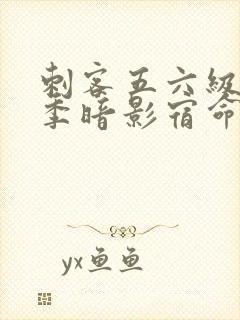 刺客五六级
季暗影宿命
yx鱼鱼